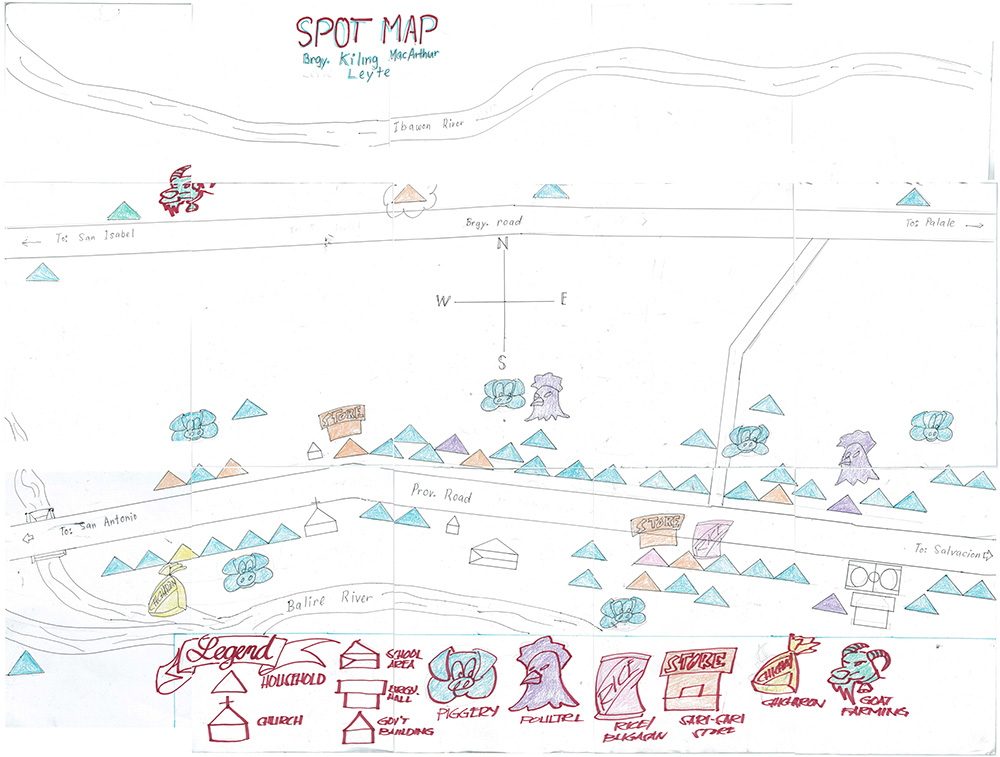 SPOT MAP
Brgy. Kiling MacArthur
Leyte
Ibawon River
To: San Isabel
Brgy. road
To: Palale
N
W
E
S
STORE
Prov. Road
To: San Antonio
STORE
RICE
To: Salvacion
CHICHARON
Balire River
Legend
HOUSEHOLD
CHURCH
SCHOOL
AREA
BRGY.
HALL
GOV'T
BUILDING
PIGGERY
POULTRY
RICE
RICE/
BUGASAN
STORE
SARI-SARI
STORE
CHICHARON
GOAT
FARMING